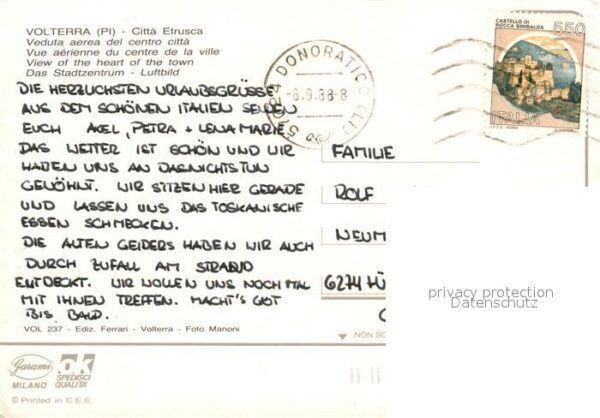 VOLTERRA (PI) - Città Etrusca
Veduta aerea del centro città
Vue aérienne du centre de la ville
View of the heart of the town
Das Stadtzentrum - Luftbild
DIE HERZLICHSTEN URLAUBSGRÜSSE
AUS DEM SCHÖNEN ITALIEN SENDEN
EUCH AXEL, PETRA + LENA MARIE
DAS WETTER IST SCHÖN UND WIR
HABEN UNS AN DAS NICHTSTUN
GEWÖHNT. WIR SITZEN HIER GERADE
UND LASSEN UNS DAS TOSKANISCHE
ESSEN SCHMECKEN.
DIE ALTEN GEIDERS HABEN WIR AUCH
DURCH ZUFALL AM STRAND
ENTDECKT. WIR WOLLEN UNS NOCH MAL
MIT IHNEN TREFFEN. MACHT'S GUT
BIS BALD.
VOL 237 - Ediz. Ferrari - Volterra - Foto Manoni
Garami
MILANO
OK
SPEDISCI
QUALITÀ
© Printed in C.E.E.
DONORATICO (LI)
-6.9.88-8
CASTELLO DI
ROCCA SINIBALDA
550
ITALIA
FAMILIE
ROLF
NEUM
6274 HÜ
NON SC
privacy protection
Datenschutz